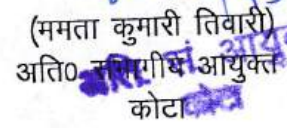 (ममता कुमारी तिवारी)
अति० संभागीय आयुक्त
कोटा